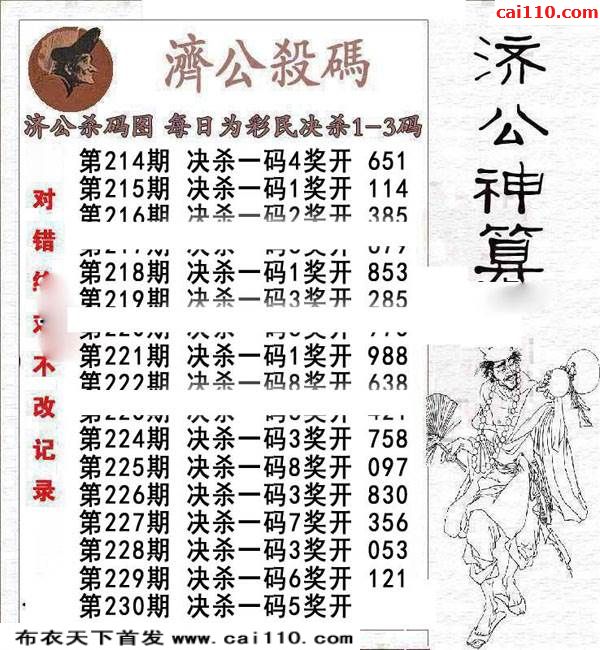 cai110.com
濟公殺碼
济公杀码图 每日为彩民决杀1-3码
第214期 决杀一码4奖开 651
第215期 决杀一码1奖开 114
第216期 决杀一码2奖开 385
第218期 决杀一码1奖开 853
第219期 决杀一码3奖开 285
第221期 决杀一码1奖开 988
第222期 决杀一码8奖开 638
第224期 决杀一码3奖开 758
第225期 决杀一码8奖开 097
第226期 决杀一码3奖开 830
第227期 决杀一码7奖开 356
第228期 决杀一码3奖开 053
第229期 决杀一码6奖开 121
第230期 决杀一码5奖开
对错
不改记录
济公神算
布衣天下首发 www.cai110.com